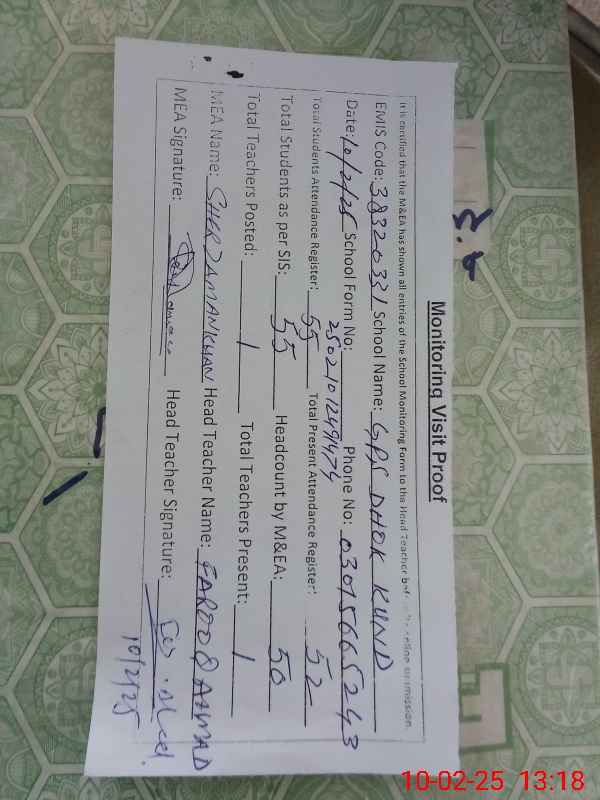 Monitoring Visit Proof
It is certified that the M&EA has shown all entries of the School Monitoring Form to the Head Teacher
EMIS Code: 38320331 School Name: GPS DHOK KUND
Date: 10/2/25 School Form No: 2502101249474 Phone No: 03015665243
Total Students Attendance Register: 55 Total Present Attendance Register: 52
Total Students as per SIS: 55 Headcount by M&EA: 50
Total Teachers Posted: 1 Total Teachers Present: 1
MEA Name: SHER ZAMAN KHAN Head Teacher Name: FAROOQ AHMAD
MEA Signature: Head Teacher Signature:
10/2/25
10-02-25 13:18